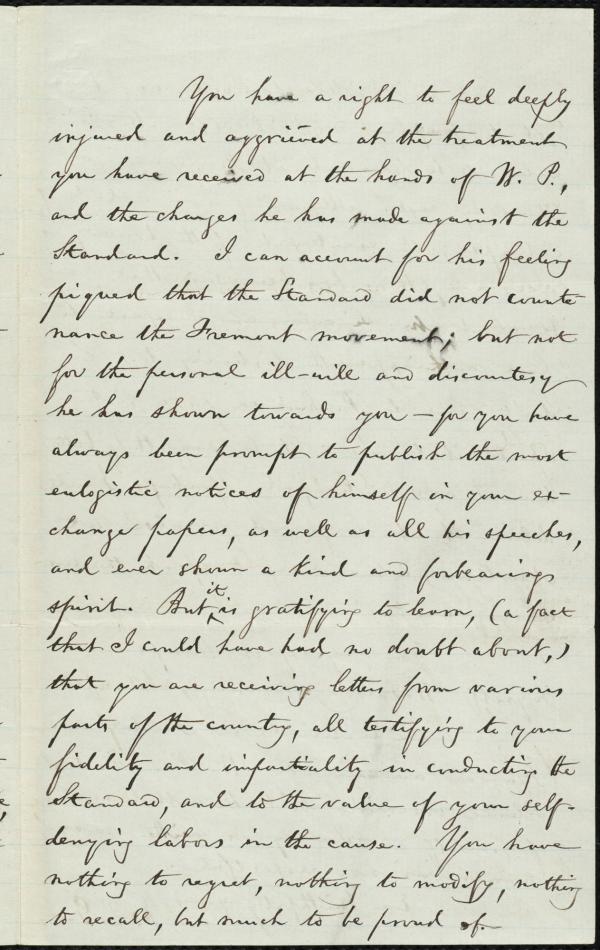 You have a right to feel deeply
injured and aggrieved at the treatment
you have received at the hands of W. P.,
and the charges he has made against the
Standard. I can account for his feeling
piqued that the Standard did not counte-
nance the Fremont movement; but not
for the personal ill-will and discourtesy
he has shown towards you — for you have
always been prompt to publish the most
eulogistic notices of himself in your ex-
change papers, as well as all his speeches,
and ever shown a kind and forbearing
spirit. But it is gratifying to learn, (a fact
that I could have had no doubt about,)
that you are receiving letters from various
parts of the country, all testifying to your
fidelity and impartiality in conducting the
Standard, and to the value of your self-
denying labors in the cause. You have
nothing to regret, nothing to modify, nothing
to recall, but much to be proud of.